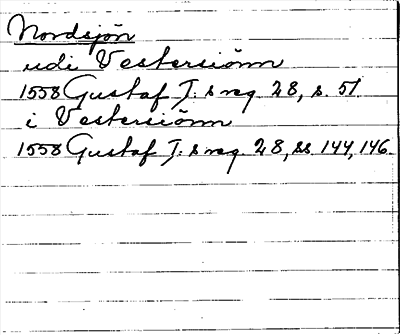 Nordsjön
udi Vestersiönn
1558 Gustaf I:s reg. 28, s. 51
i Vestersiönn
1558 Gustaf I:s reg. 28, ss. 144, 146.